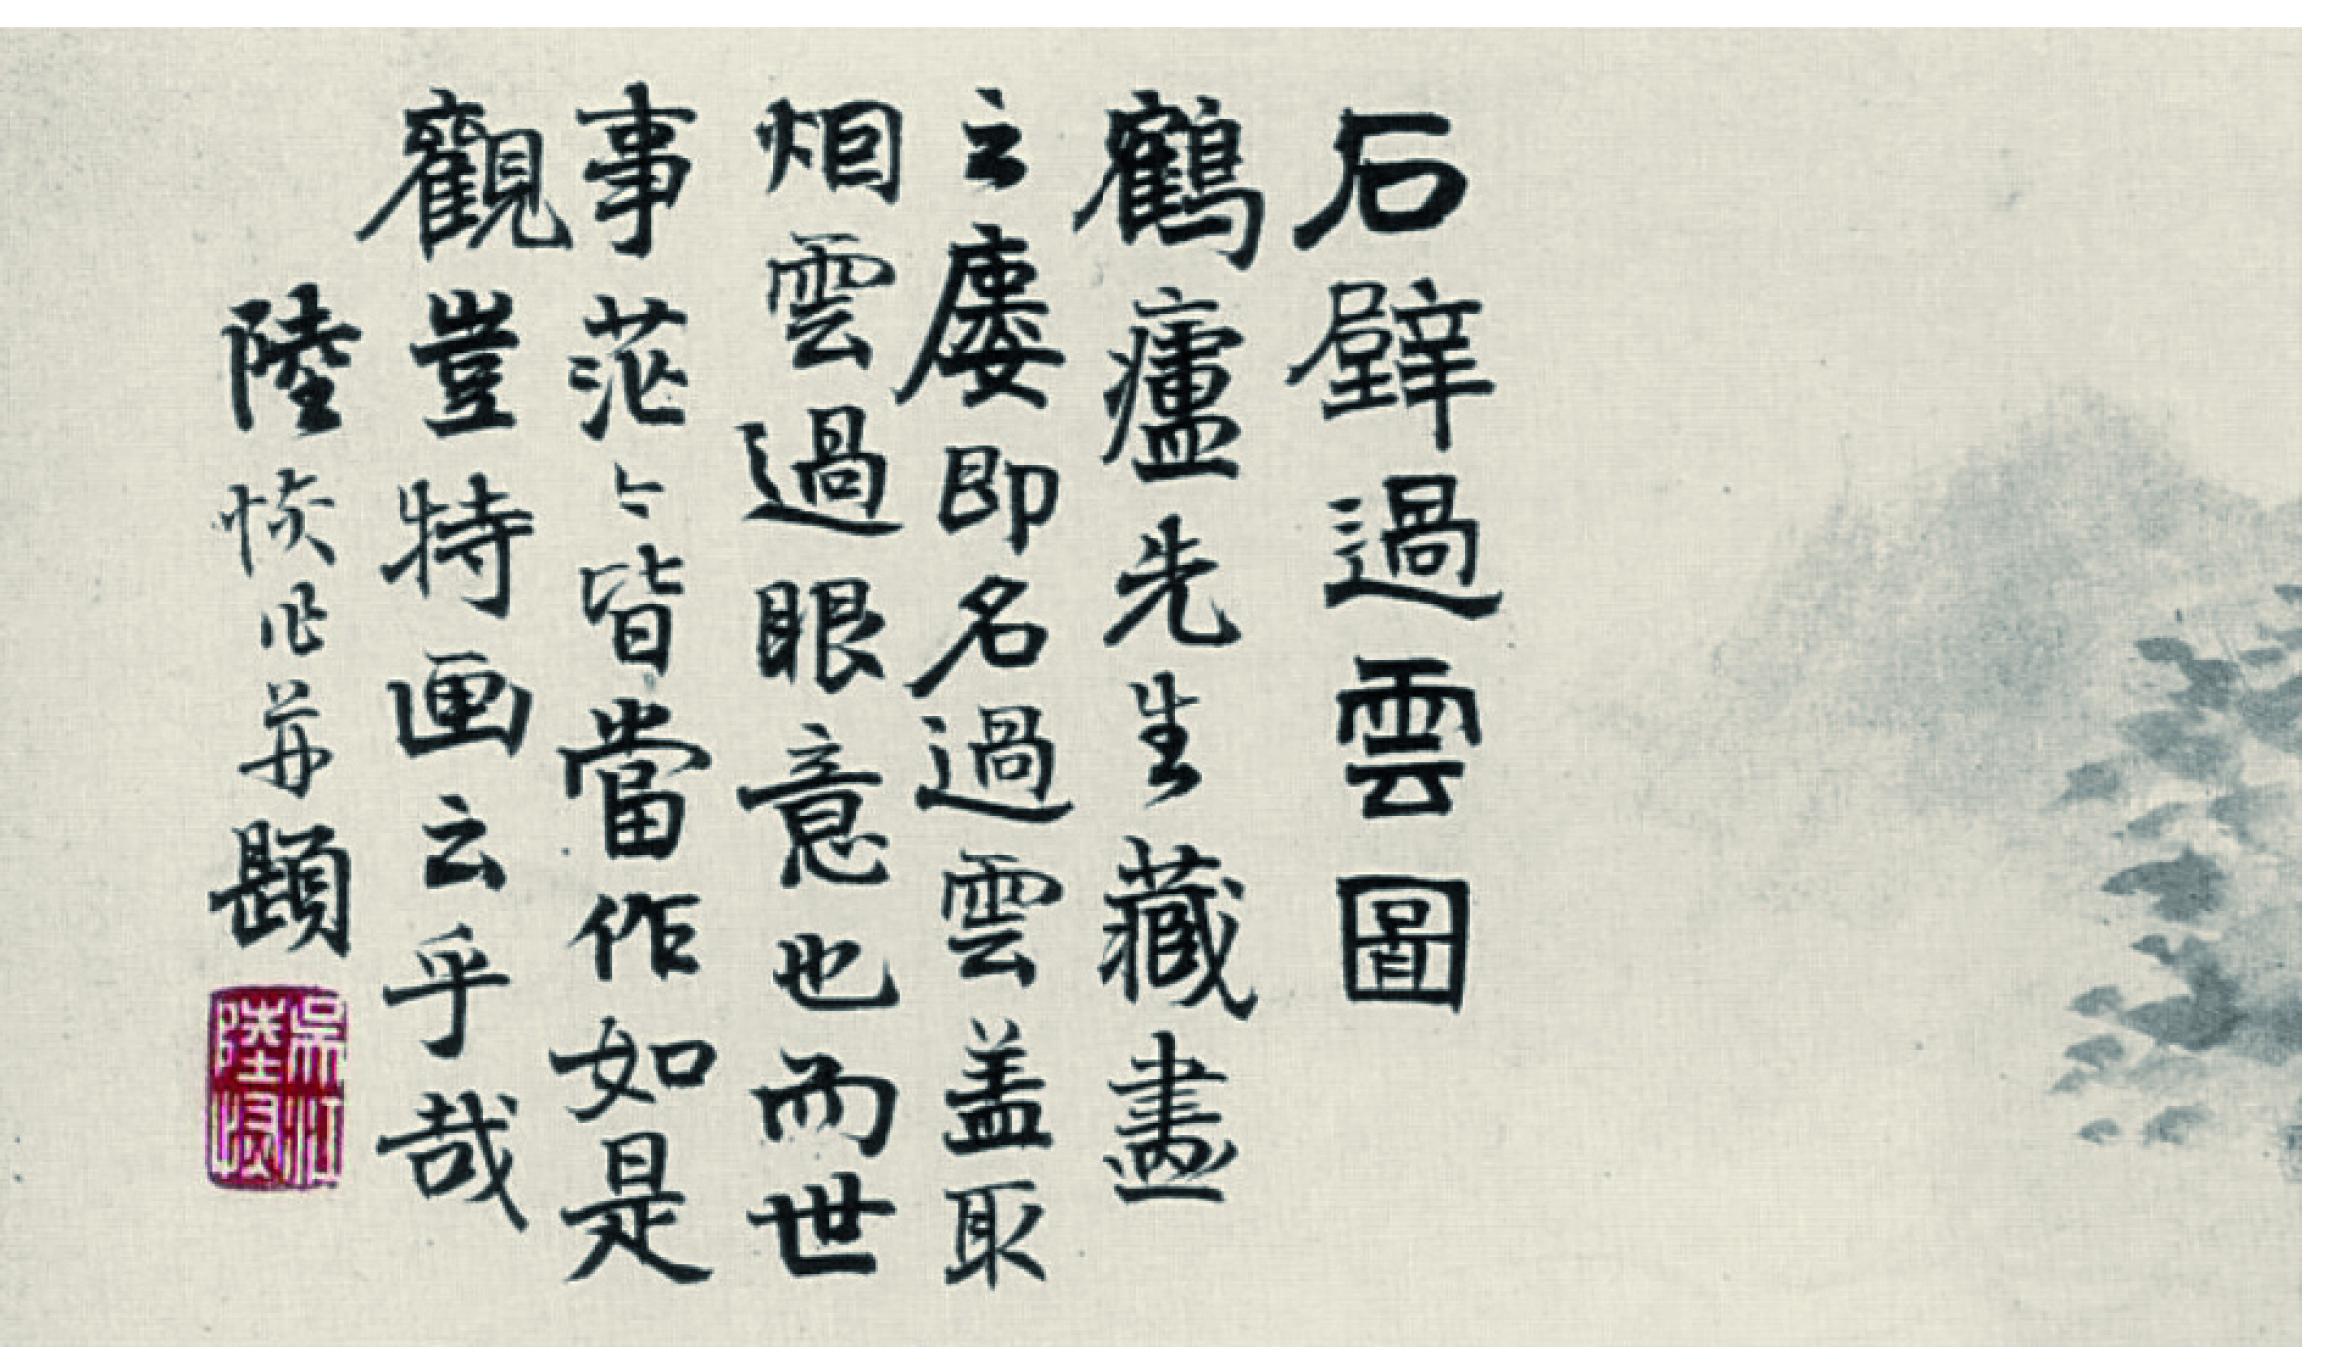 石壁過雲圖
鶴廬先生藏畫
之廔即名過雲蓋取
烟雲過眼意也而世
事茫々皆當作如是
觀豈特画云乎哉
陸恢作并題
吳江陸恢